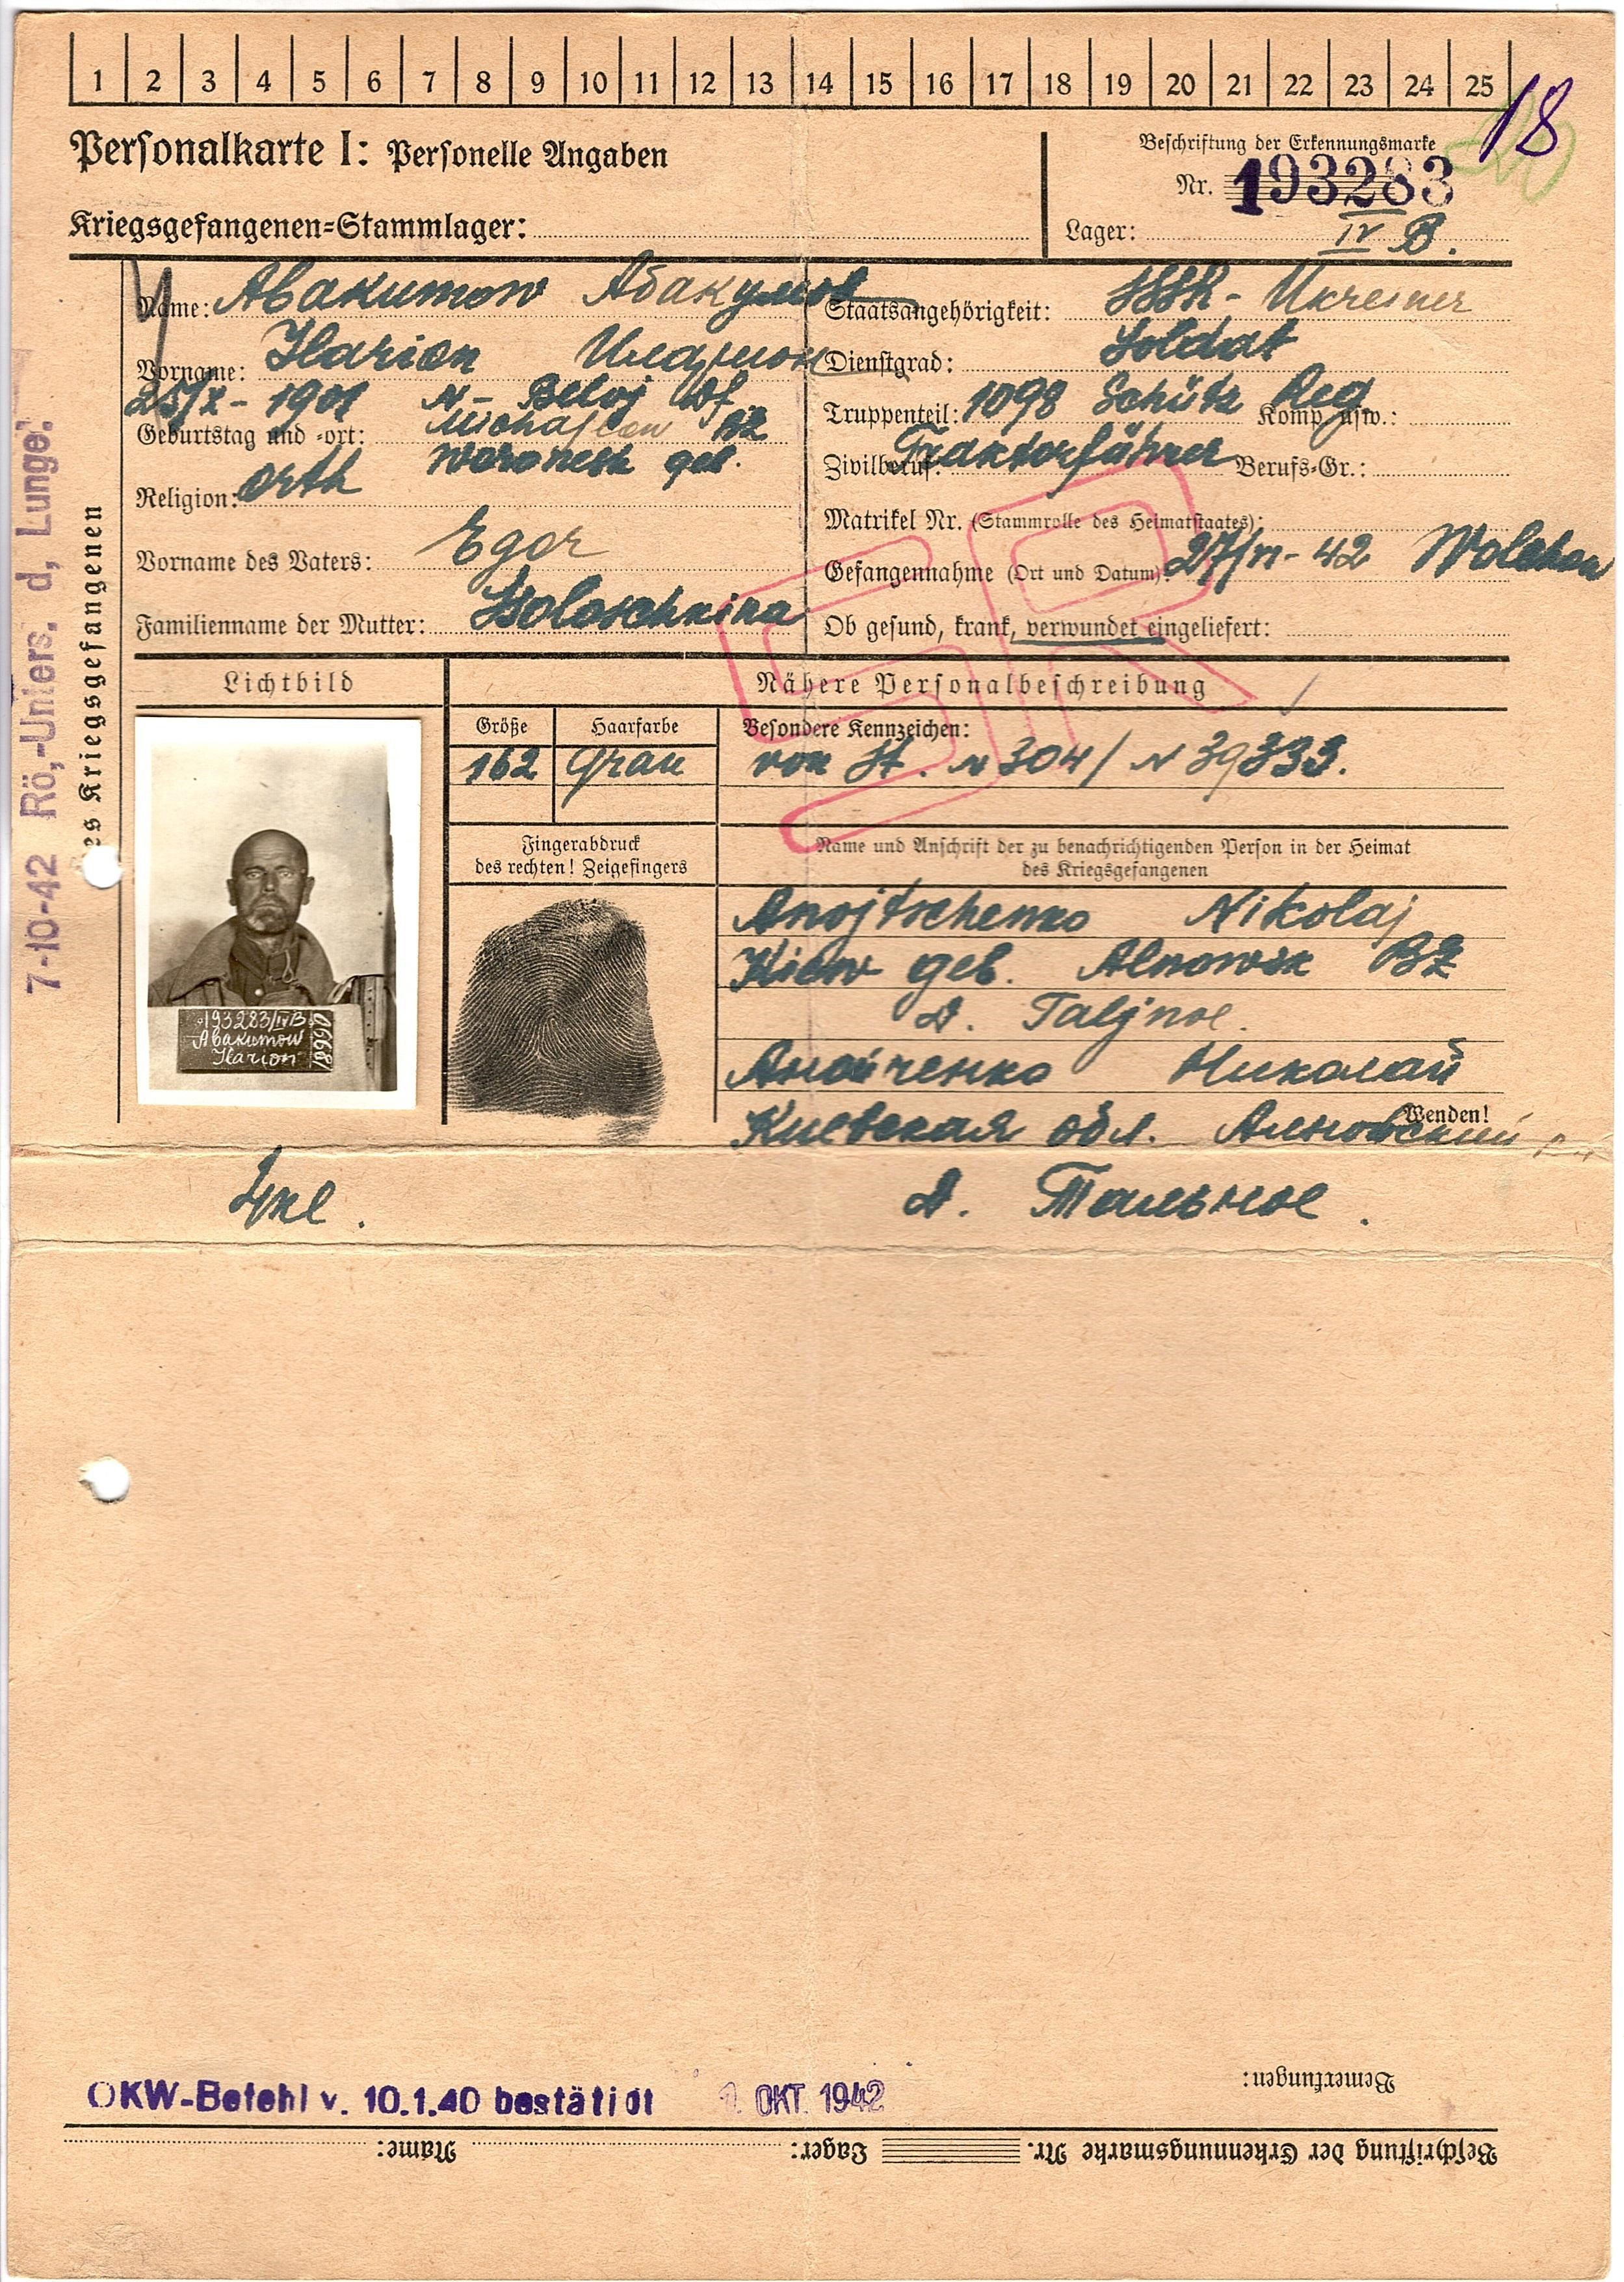 1 2 3 4 5 6 7 8 9 10 11 12 13 14 15 16 17 18 19 20 21 22 23 24 25
18
Personalkarte I: Personelle Angaben
Beschriftung der Erkennungsmarke
Nr. 193283
Kriegsgefangenen-Stammlager:
Lager: IV B.
Name: Abakumow Абакумов
Vorname: Ilarion Иларион
Geburtstag und -ort: 25/X- 1901 N- Beloj Df
BZ
Woronesh geb.
Religion: orth
Vorname des Vaters: Egor
Familienname der Mutter:
Staatsangehörigkeit: SSSR- Ukreiner
Dienstgrad: Soldat
Truppenteil: 1098 Schütz Reg Komp. usw.:
Zivilberuf: Traktorführer Berufs-Gr.:
Matrikel Nr. (Stammrolle des Heimatstaates):
Gefangennahme (Ort und Datum): 27/VI- 42 Wolchow
Ob gesund, krank, verwundet eingeliefert:
des Kriegsgefangenen
7-10-42 Rö,-Unters. d, Lunge:
Lichtbild
Nähere Personalbeschreibung
Größe
162
Haarfarbe
Grau
Besondere Kennzeichen:
von St. N 304/ N 39333.
193283/IVB
Abakumow
Ilarion
Fingerabdruck
des rechten! Zeigefingers
Name und Anschrift der zu benachrichtigenden Person in der Heimat
des Kriegsgefangenen
Anojtschenko Nikolaj
Kiew geb. Alnowsk BZ
D. Taljnoe.
Анойченко Николай
Киевская обл. Алновский
Wenden!
Д. Тальное.
SR
OKW-Befehl v. 10.1.40 bestätigt 1. OKT. 1942
Bemerkungen:
Beschriftung der Erkennungsmarke Nr. Lager: Name: